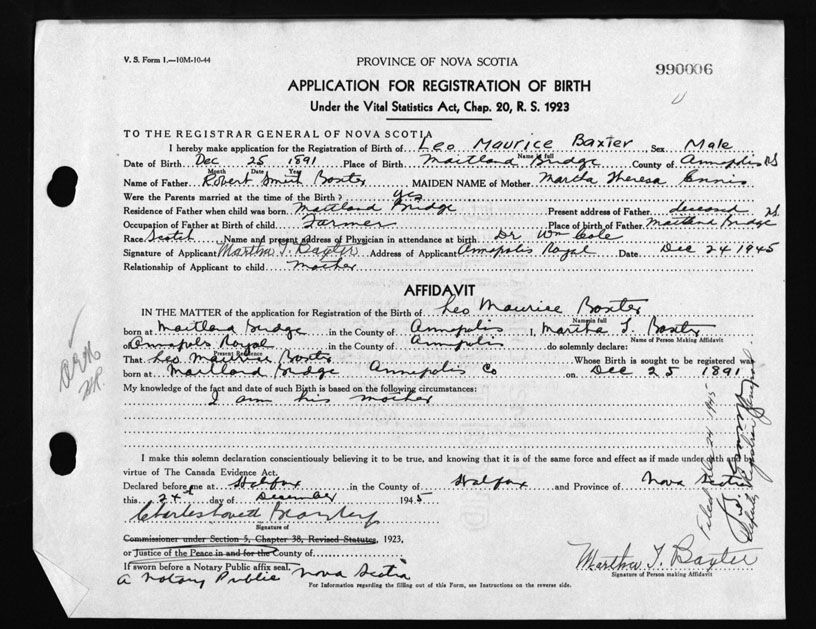 V. S. Form 1.—10M-10-44
PROVINCE OF NOVA SCOTIA
990006
APPLICATION FOR REGISTRATION OF BIRTH
Under the Vital Statistics Act, Chap. 20, R. S. 1923
TO THE REGISTRAR GENERAL OF NOVA SCOTIA
I hereby make application for the Registration of Birth of Leo Maurice Baxter Sex Male
Name in full
Date of Birth Dec 25 1891 Place of Birth Maitland Bridge County of Annapolis NS
Month Date Year
Name of Father Robert Smith Baxter MAIDEN NAME of Mother Martha Theresa Ennis
Were the Parents married at the time of the Birth? yes
Residence of Father when child was born Maitland Bridge Present address of Father deceased
Occupation of Father at Birth of child Farmer Place of birth of Father Maitland Bridge NS.
Race Scotch Name and present address of Physician in attendance at birth Dr Wm Cole
Signature of Applicant Martha T. Baxter Address of Applicant Annapolis Royal Date Dec 24 1945
Relationship of Applicant to child mother
AFFIDAVIT
IN THE MATTER of the application for Registration of the Birth of Leo Maurice Baxter
Name in full
born at Maitland Bridge in the County of Annapolis I, Martha T. Baxter
Name of Person Making Affidavit
of Annapolis Royal in the County of Annapolis do solemnly declare:
Present Residence
That Leo Maurice Baxter Whose Birth is sought to be registered was
born at Maitland Bridge Annapolis Co on Dec 25 1891
My knowledge of the fact and date of such Birth is based on the following circumstances:
I am his mother
I make this solemn declaration conscientiously believing it to be true, and knowing that it is of the same force and effect as if made under oath and by
virtue of The Canada Evidence Act.
Declared before me at Halifax in the County of Halifax and Province of Nova Scotia
this 24th day of December 1945
Signature of
Commissioner under Section 5, Chapter 38, Revised Statutes, 1923,
or Justice of the Peace in and for the County of
If sworn before a Notary Public affix seal.
A Notary Public Nova Scotia
Martha T. Baxter
Signature of Person making Affidavit
For Information regarding the filling out of this Form, see Instructions on the reverse side.
Filed Dec 24 1945
Deputy Registrar General